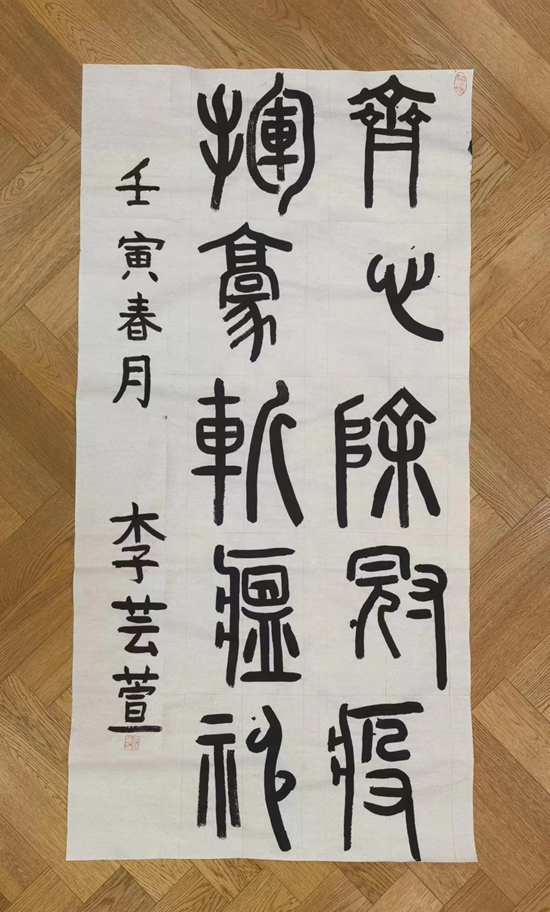 齊心除冠疫
揮豪斬瘟神
壬寅春月 李芸萱